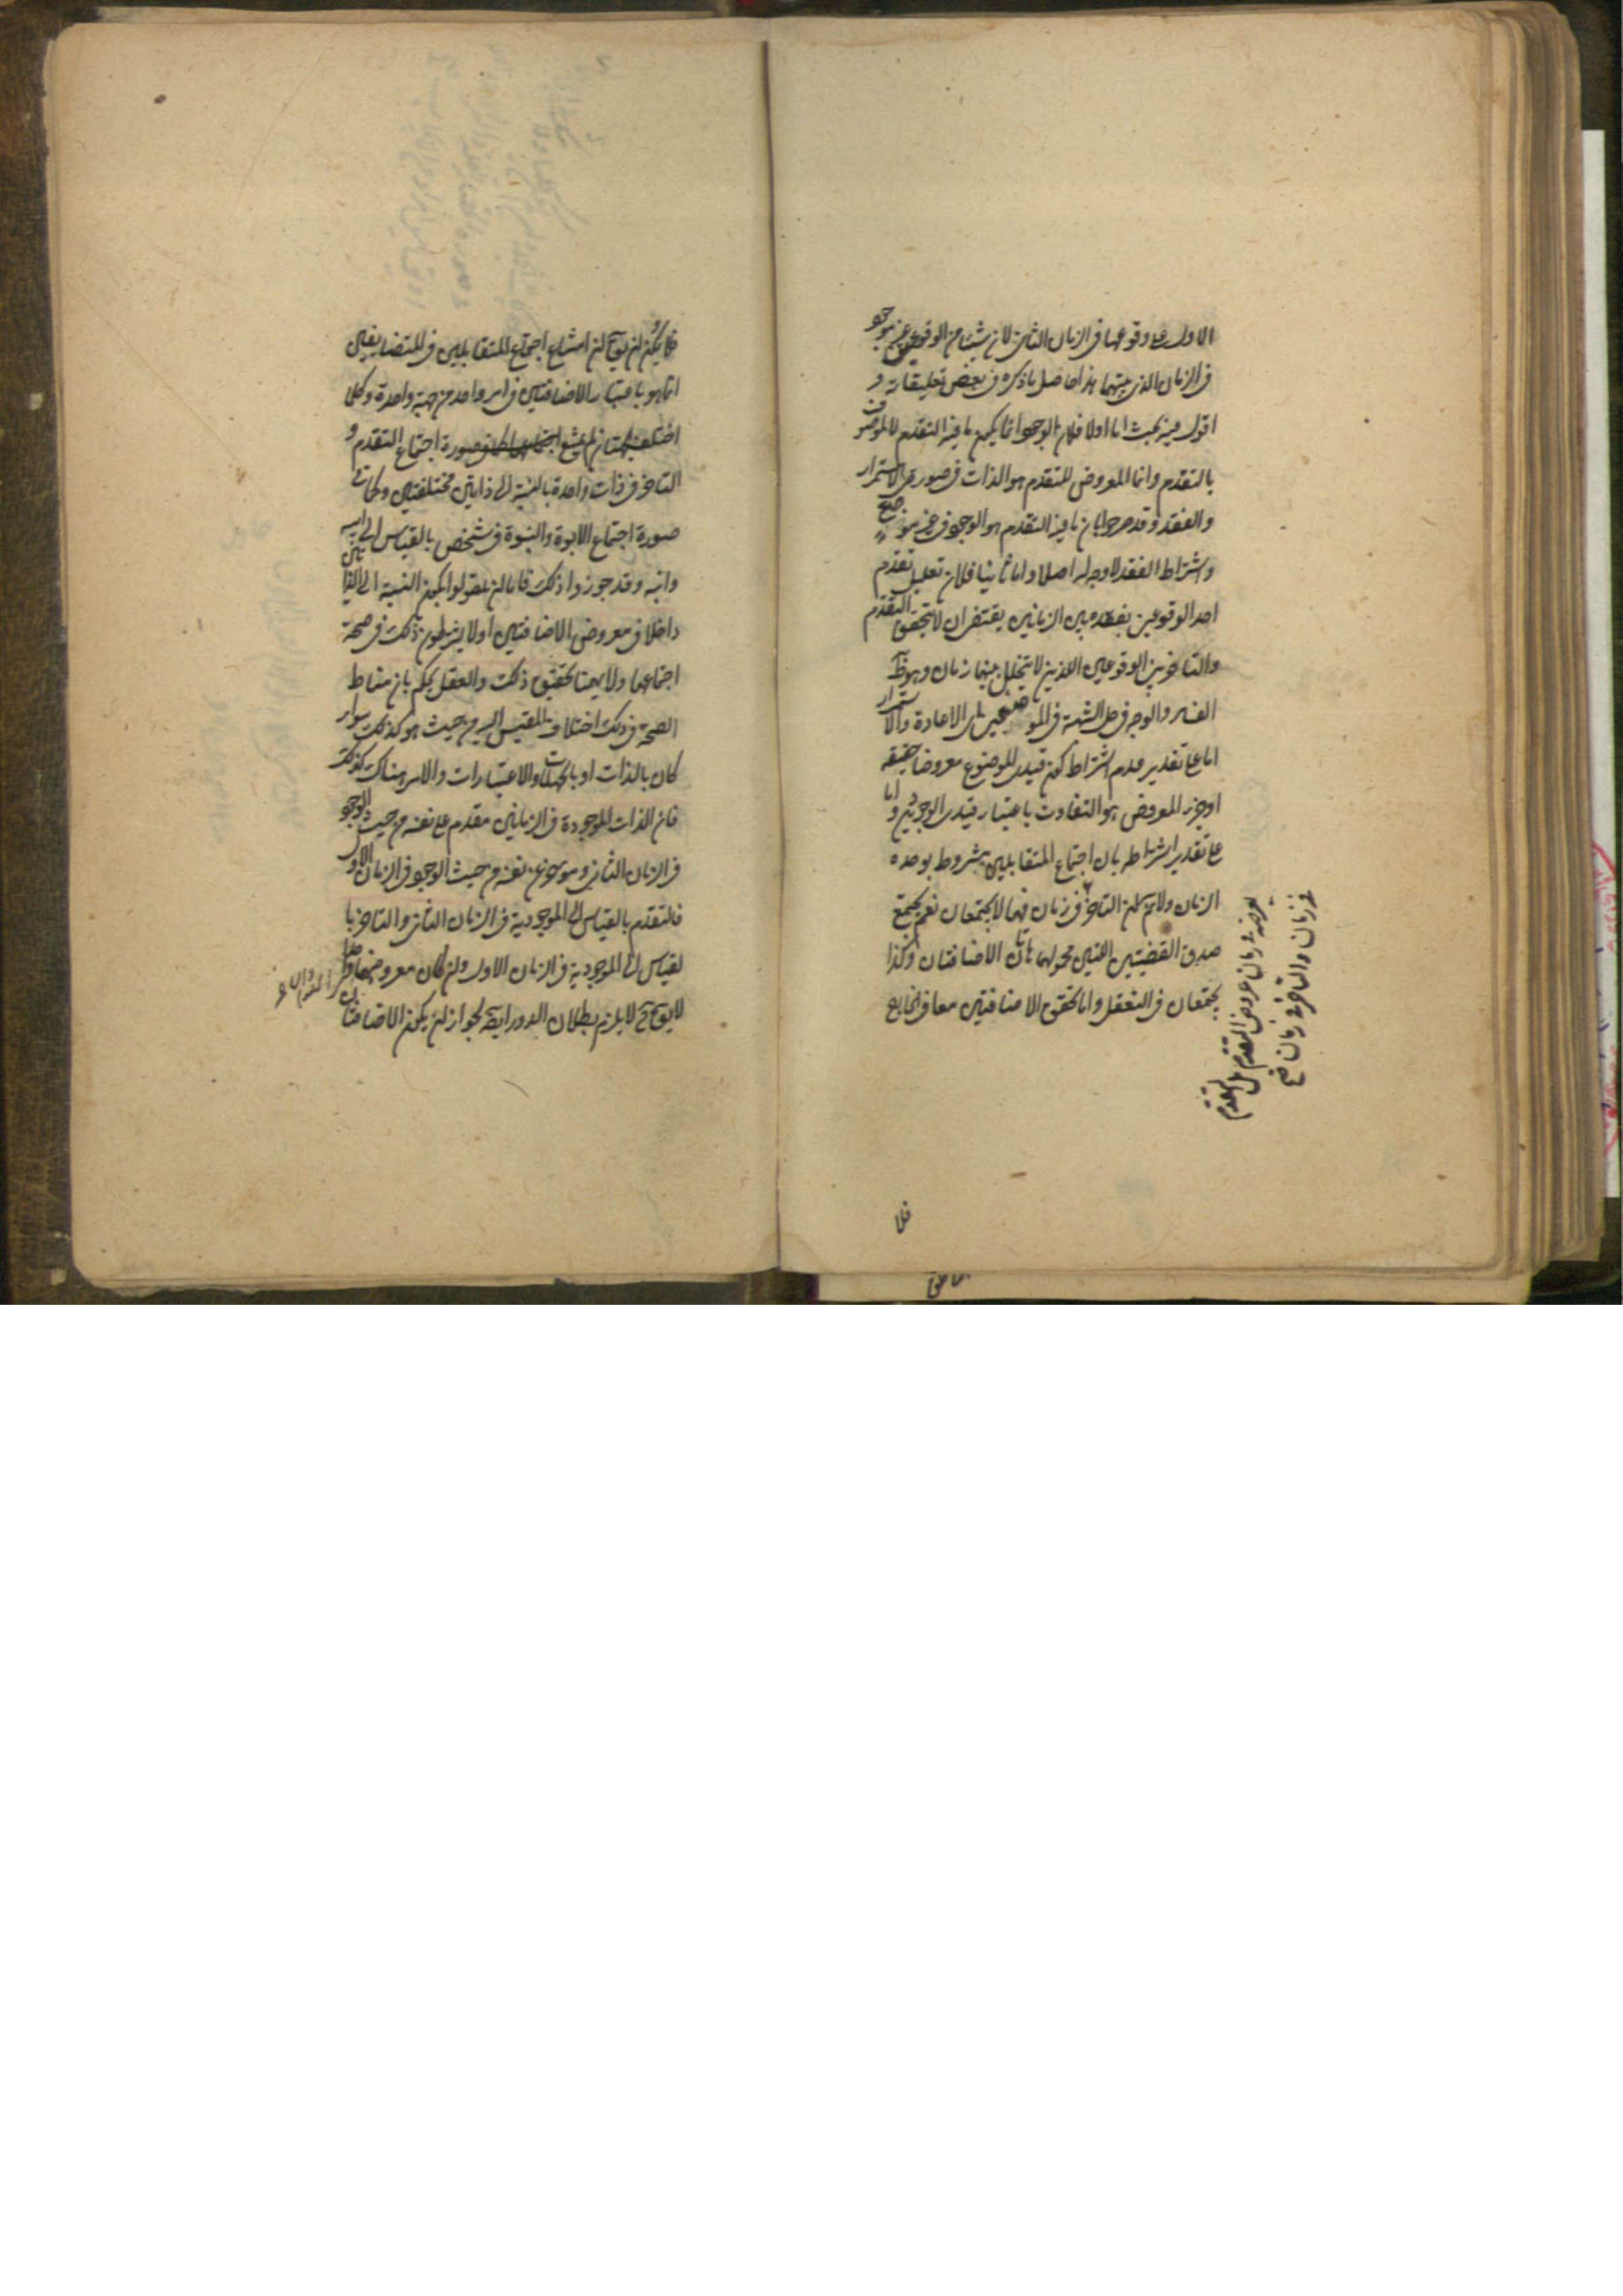 الاول على وقوعها فى الزمان الثانى لان شيئا من الوقوعين غير موجو
فى الزمان الذى بينهما هذا حاصل ما ذكره فى بعض تعليقاته و
اقول فيه بحث اما اولا فلان الوجود انما يكون ما فيه التقدم لا الموصوف
بالتقدم وانما المعروض للتقدم هو الذات فى صورتى الاستمرار
والفقد وقد صرحوا بان ما فيه التقدم هو الوجود فى غير موضع
واشتراط الفقد لا وجه له اصلا واما ثانيا فلان تعليل تقدم
احد الوقوعين بفقده بين الزمانين يقتضى ان لا يتحقق التقدم
والتاخر بين الوقوعين اللذين لا يتخلل بينهما زمان وهو ظ
الفساد والوجه فى حل الشبهة فى الموضعين اى الاعادة والاستمرار
اما على تقدير عدم اشتراط كون قيدى الموضوع معروضا حقيقة
او جزء المعروض هو التفاوت باعتبار قيدى الوجودين واما
على تقدير اشتراطه بان اجتماع المتقابلين مشروط بوحدة
الزمان ولا تم ان التاخر فى زمان فهما لا يجتمعان نعم يجتمع
صدق القضيتين اللتين محمولهما هاتان الاضافتان وكذا
يجتمعان فى التعقل واما تحقق الاضافتين معا فى الخارج
يعرضه فى زمان عروض التقدم بل التقدم
فى زمان والتاخر فى زمان صح
فلا
فلا يمكن ان يوق ان امتناع اجتماع المتقابلين فى المتضايفين
انما هو باعتبار الاضافتين فى امر واحد من جهة واحدة وكلا
اختلفت الجهتان لم يمتنع اجتماعهما كما فى صورة اجتماع التقدم و
التاخر فى ذات واحدة بالنسبة الى ذاتين مختلفتين وكما فى
صورة اجتماع الابوة والبنوة فى شخص بالقياس الى ابيه
وابنه وقد جوزوا ذلك فاما ان يقولوا بكون النسبة الى الذاتين
داخلا فى معروض الاضافتين اولا يشرطون ذلك فى صحة
اجتماعهما ولا يهمنا تحقيق ذلك والعقل يحكم بان مناط
الصحة فى ذلك اختلاف المقيس اليه من حيث هو كذلك سواء
كان بالذات او بالجهات والاعتبارات والامر هناك كذلك
فان الذات الموجودة فى الزمانين مقدم على نفسه من حيث الوجود
فى الزمان الثانى وموخر عن نفسه من حيث الوجود فى الزمان الاول
فالتقدم بالقياس الى الموجودية فى الزمان الثانى والتاخر با
لقياس الى الموجودية فى الزمان الاول وان كان معروضهما واحدا
لا يوق ح لا يلزم بطلان الدور ايضا لجواز ان يكون الاضافتان